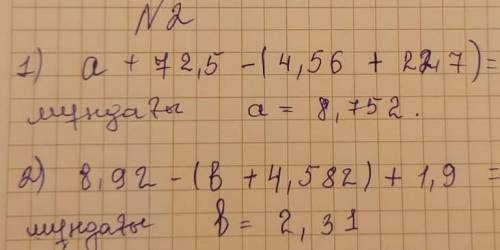 N2
1) a + 72,5 - (4,56 + 22,7) =
мұндағы a = 8,752.
2) 8,92 - (b + 4,582) + 1,9 =
мұндағы b = 2,31